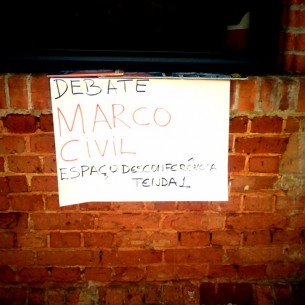 DEBATE
MARCO
CIVIL
ESPAÇO DESCONFERÊNCIA
TENDA 1